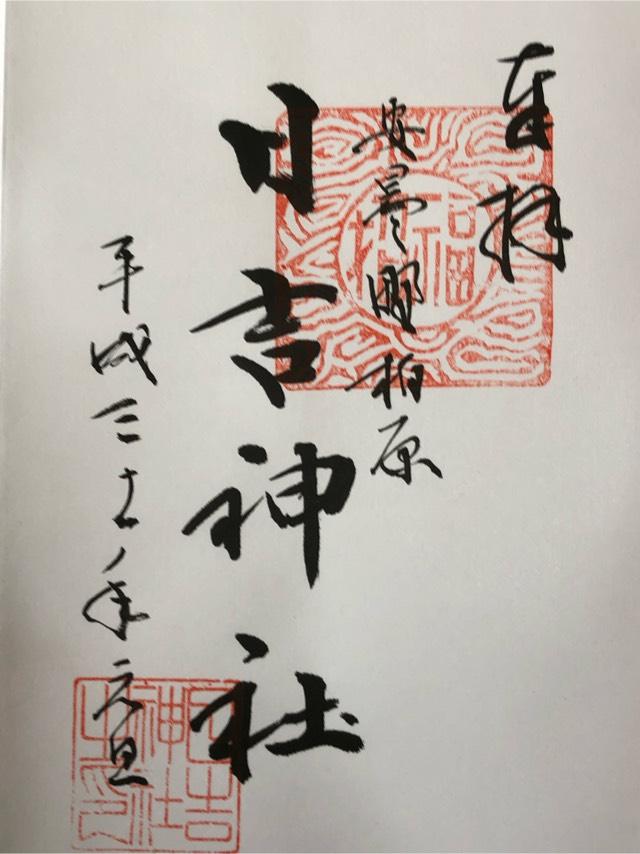 奉拝
安曇野柏原
日吉神社
平成三十一年元旦
日吉
神社
之印